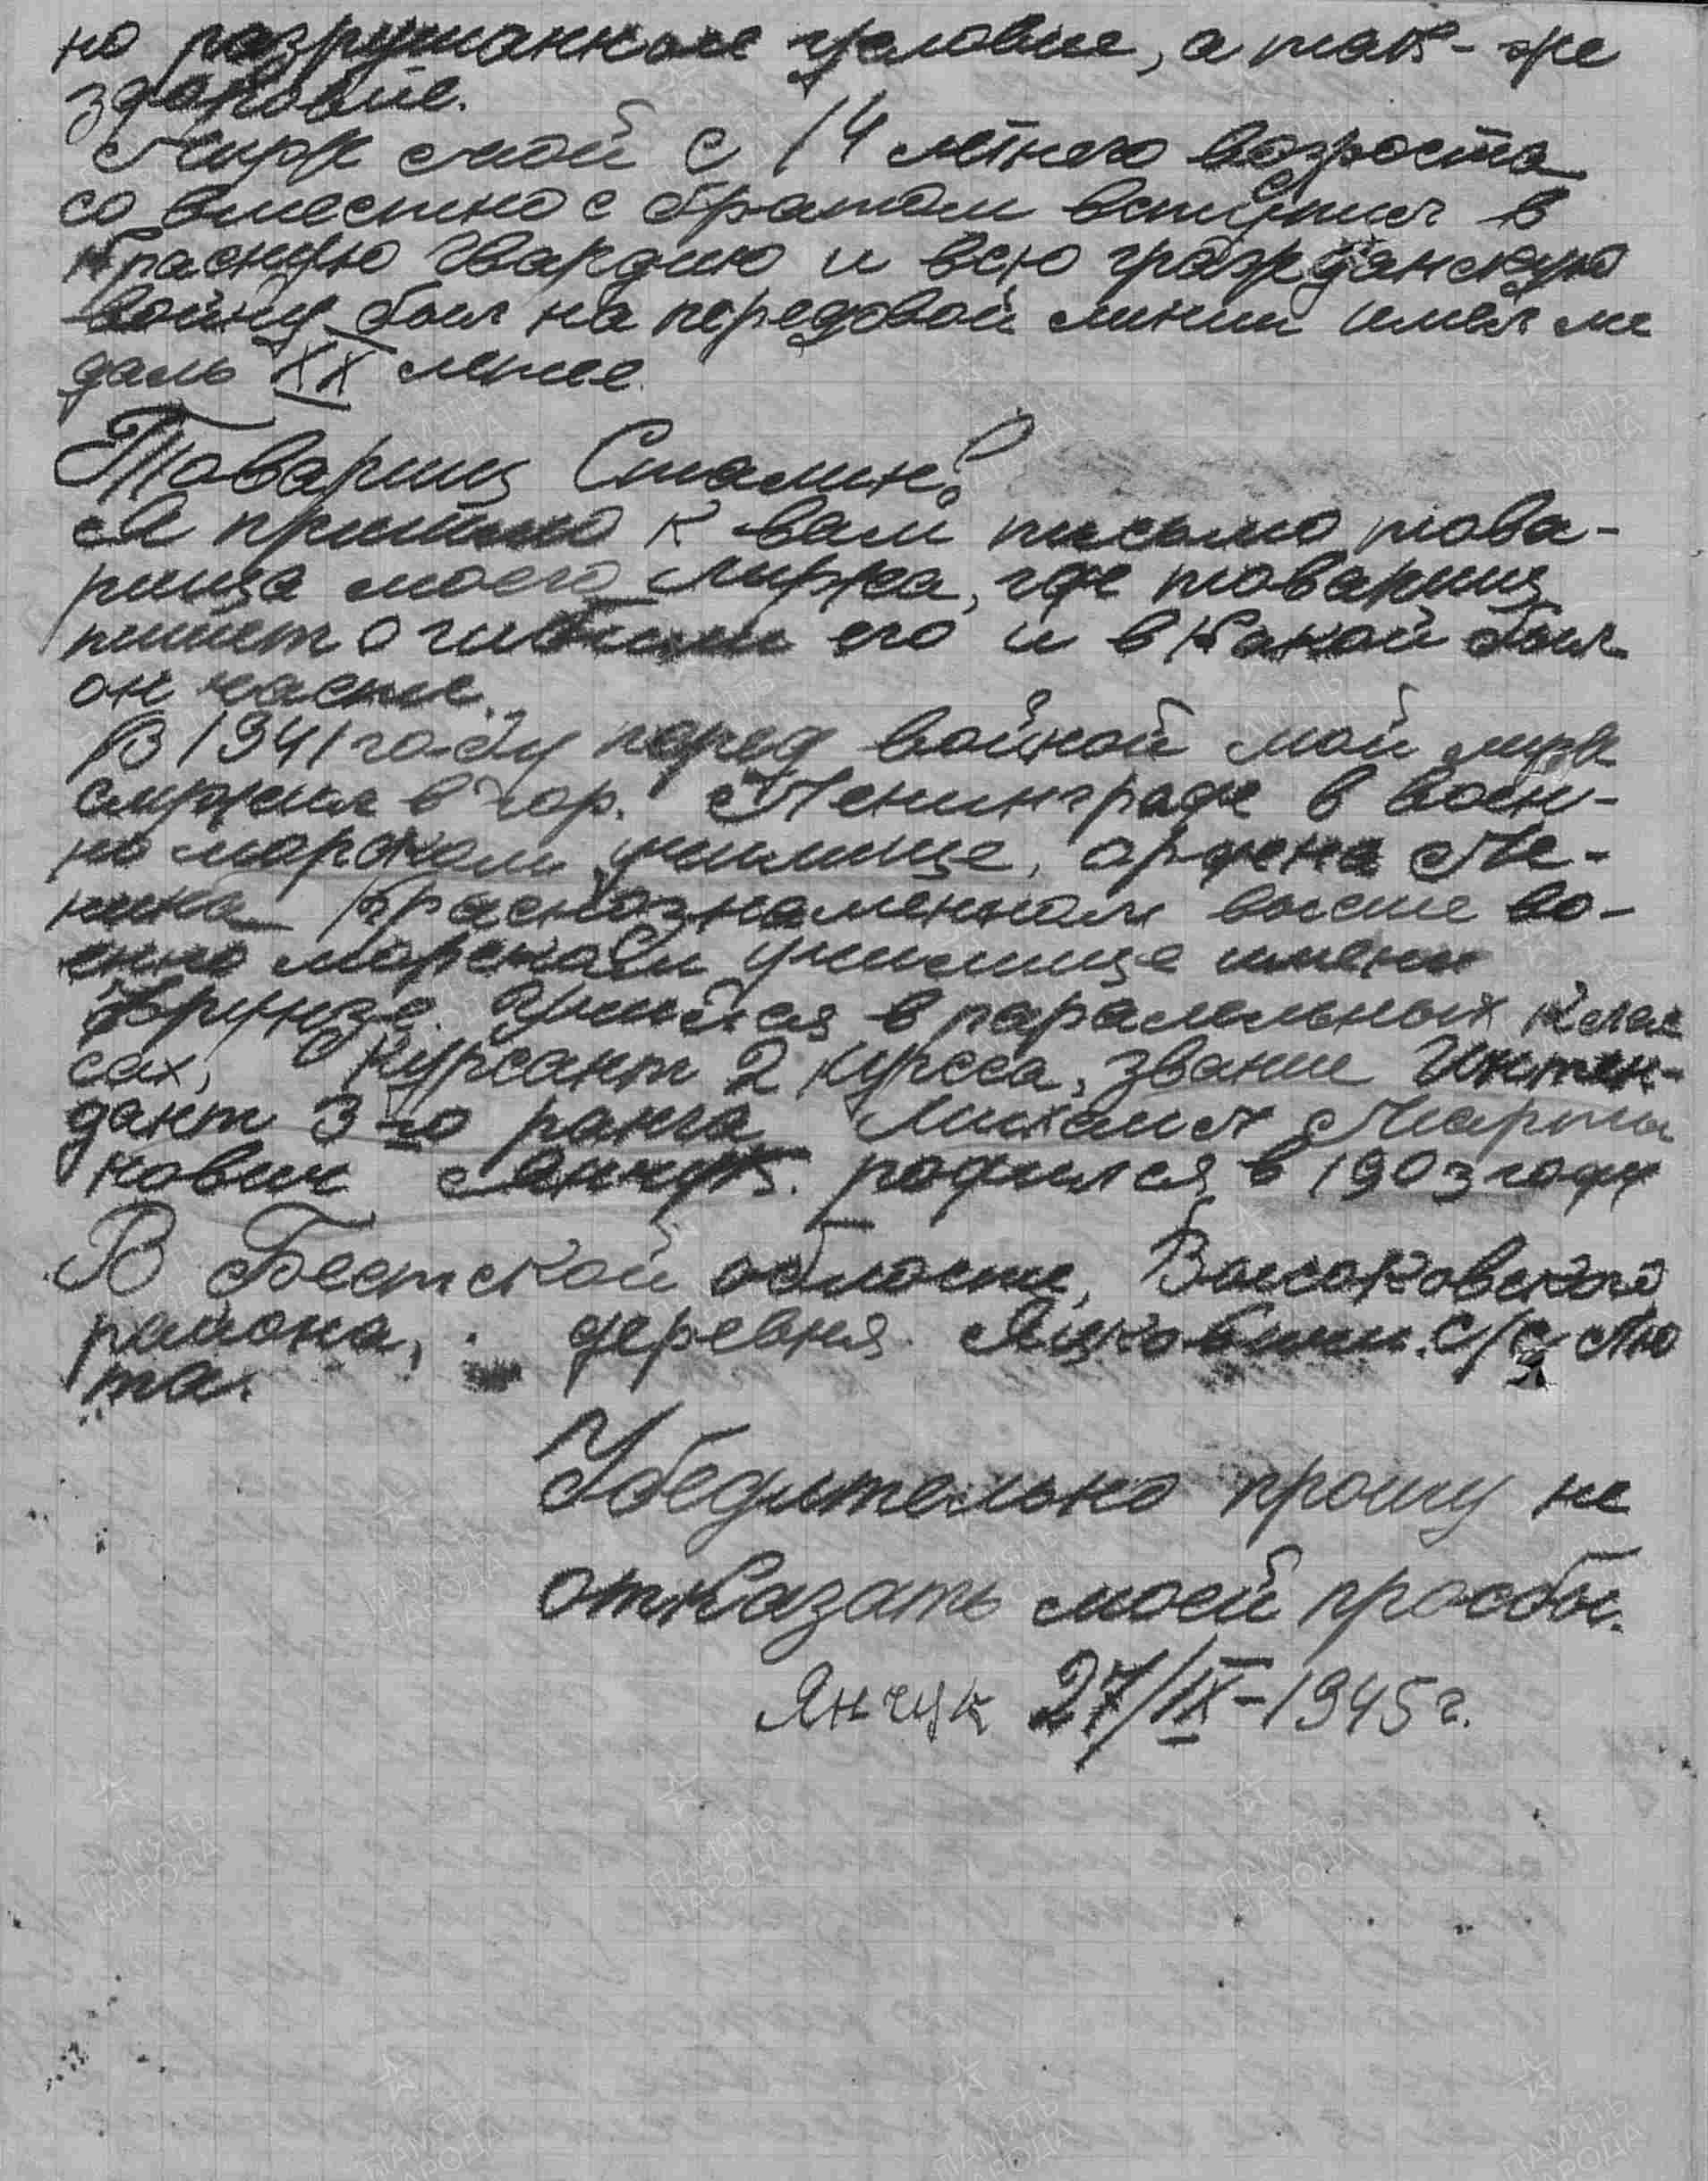 но разрушанные условие, а так-же
здоровие.
Мужа мой с 14 летнего возроста
со вместно с братом вступил в
Красную Гвардию и всю гражданскую
войну был на передовой линии имел ме
даль XX летие.
Товарищ Сталин!
Я прилагаю к вам письмо това-
рища моего мужа, где товарищ
пишет о гибели его и в какой был
он части.
В 1941 году перед войной мой муж
служил в гор. Ленинграде в воен-
но морском училище, ордена Ле-
нина Краснознаменном высше во-
енно морском училище имени
Фрунзе. Учился в паралельных клас
сах, Курсант 2 курсса, звание Интен-
дант 3-го ранга Михаил Марты
нович Янчук. родился в 1903 году
В Бестской области, Высоковского
района, деревня с/с Лю
та.
Убедительно прошу не
отказать моей прозбы.
Янчук 27/IX-1945 г.
ПАМЯТЬ
НАРОДА